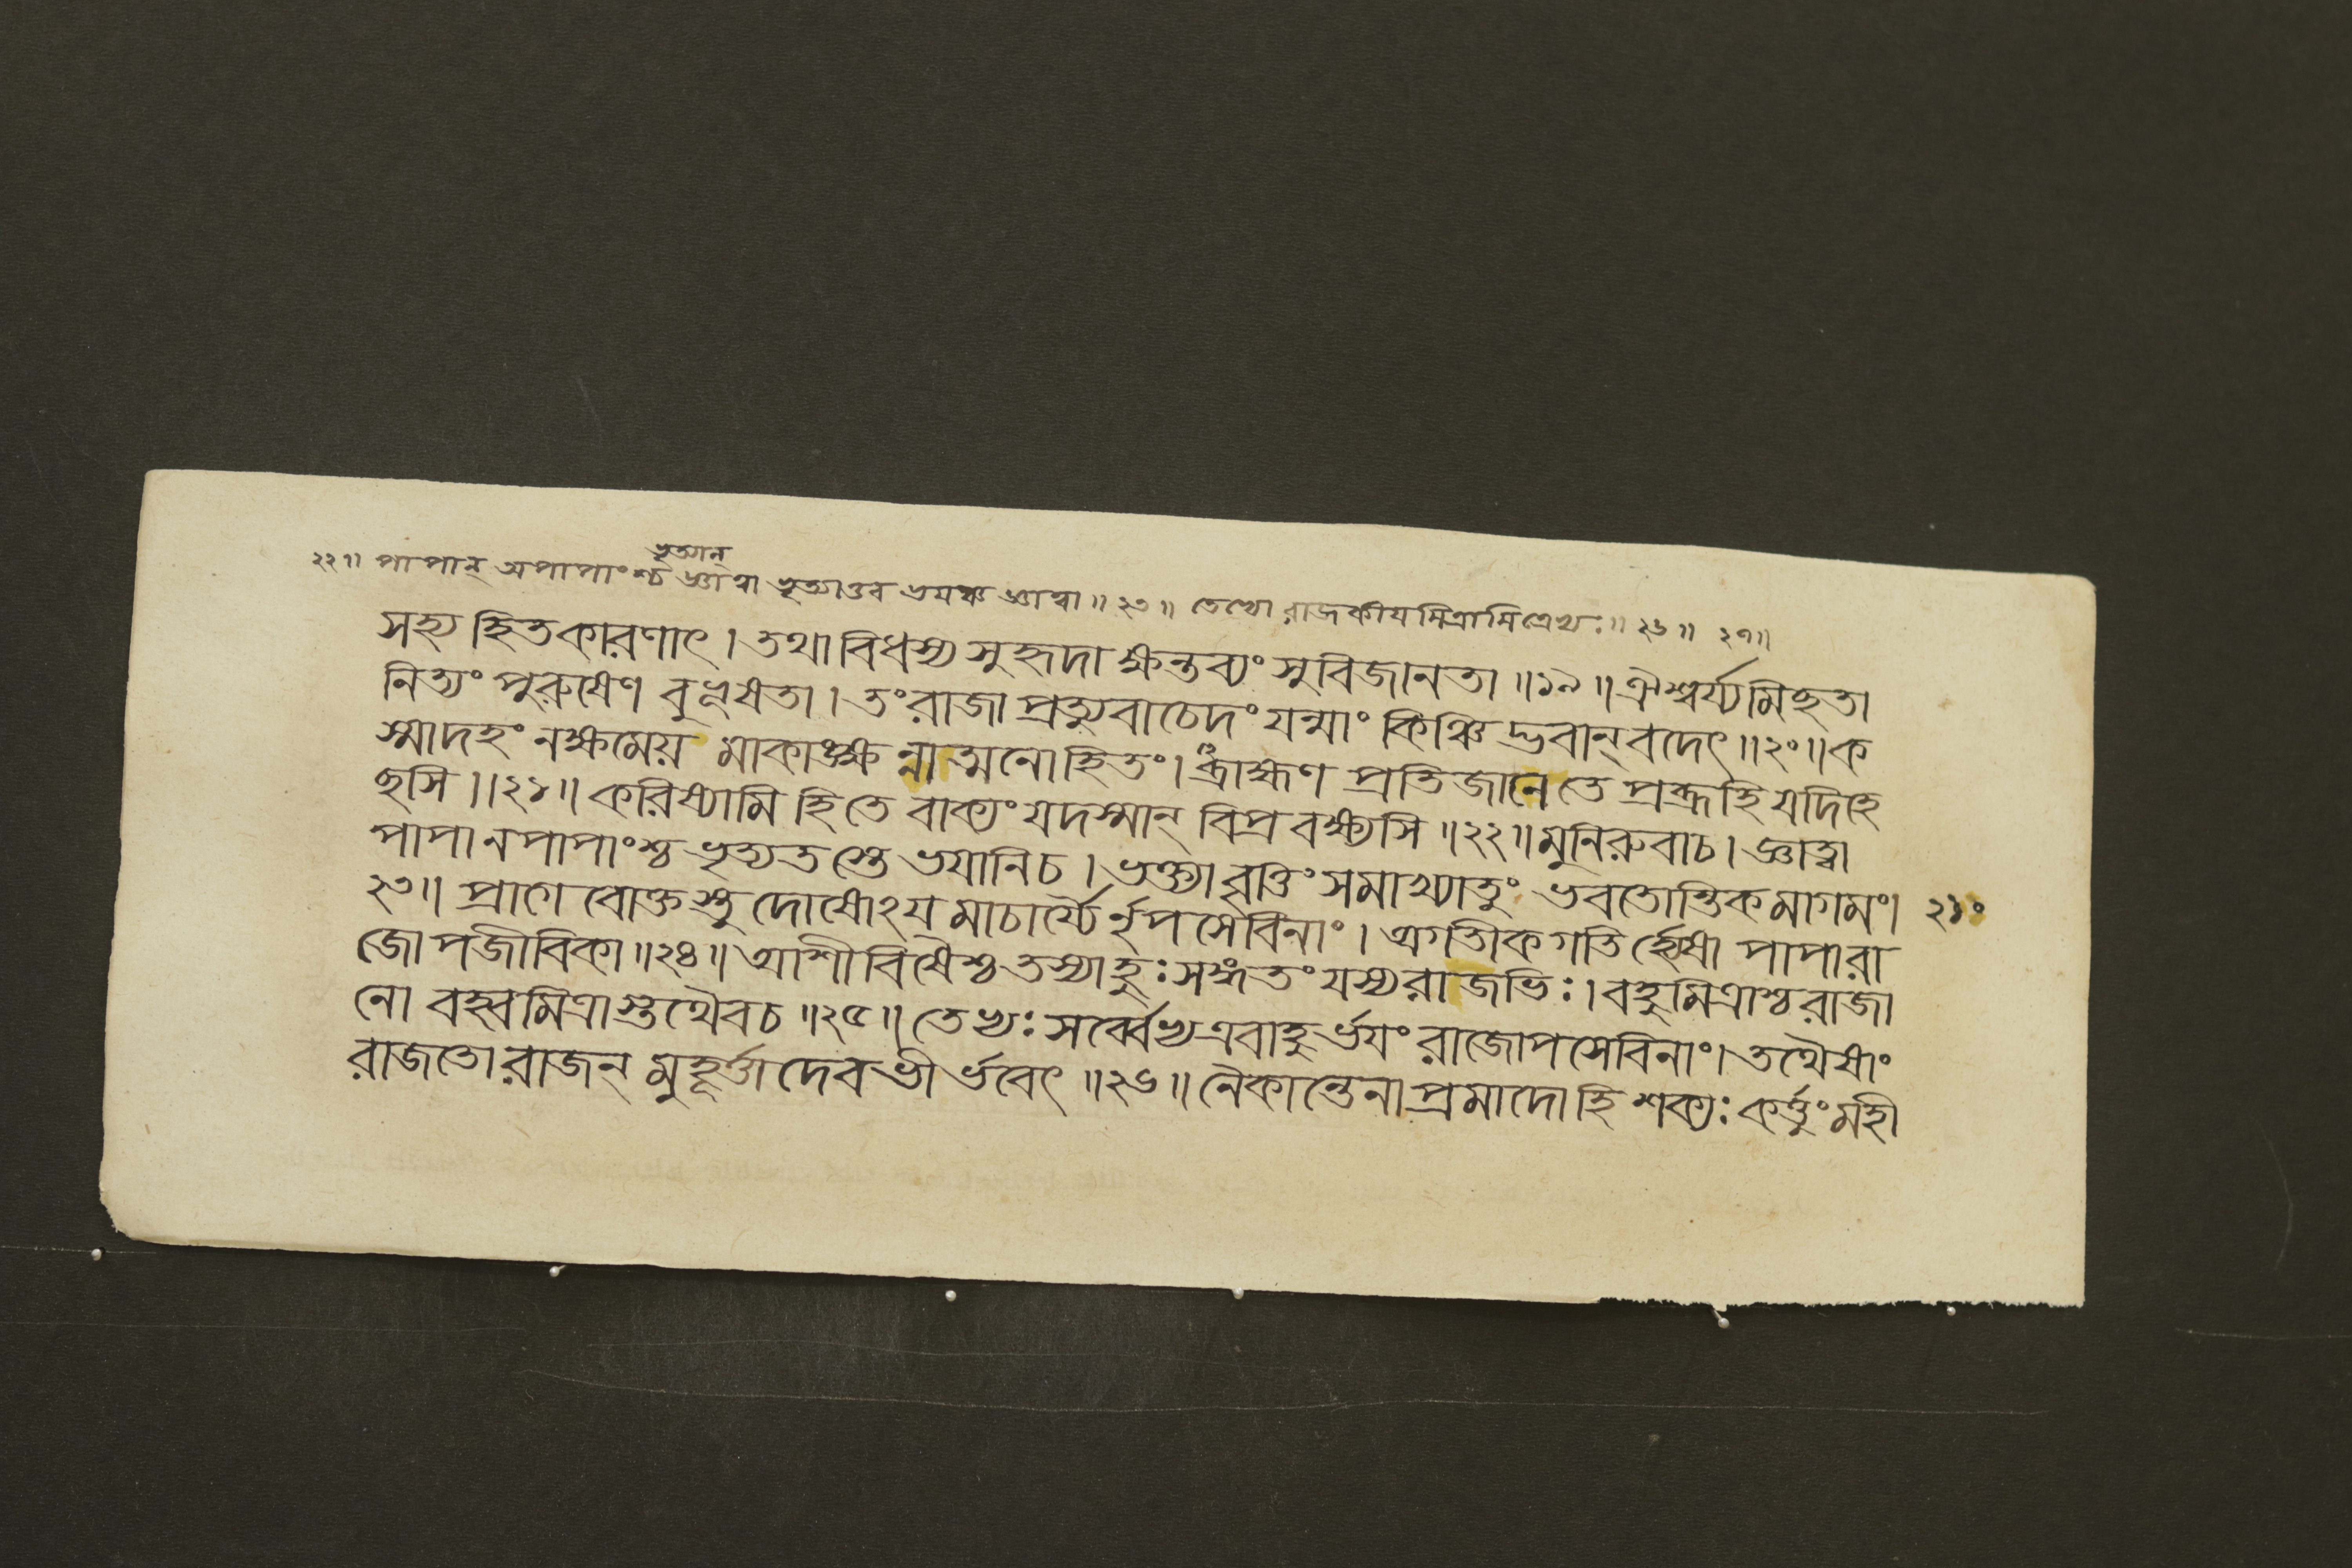 ভৃত্যান্
২২॥ পাপান্ অপাপাংশ্চ জ্ঞাত্বা ভৃত্যাত্তব ভয়ঞ্চ জ্ঞাত্বা॥২৩॥ তেভ্যো রাজকীয়মিত্রামিত্রেভ্যঃ॥২৬॥ ২৭॥
সহ্য হিতকারণাৎ। তথাবিধস্য সুহৃদা ক্ষন্তব্যং সুবিজানতা॥১৯॥ঐশ্বর্য্যমিছতা
নিত্যং পুরুষেণ বুভূষতা। তং রাজা প্রত্যুবাচেদং যন্মাং কিঞ্চিদ্ভবান্ বদেৎ॥২০॥ক
স্মাদহং নক্ষমেয় মাকাঙ্ক্ষন্নাত্মনোহিতং। ব্রাহ্মণ প্রতিজানে তে প্রব্রূহি যদিহে
ছসি॥২১॥ করিষ্যামি হি তে বাক্যং যদস্মান্ বিপ্র বক্ষ্যসি॥২২॥মুনিরুবাচ। জ্ঞাত্বা
পাপানপাপাংশ্চ ভৃত্যতস্তে ভয়ানিচ। ভক্ত্যা বৃত্তিং সমাখ্যাতুং ভবতোন্তিকমাগমং। ২১০
২৩॥ প্রাগেবোক্তস্তু দোষোঽয়মাচার্য্যৈর্নৃপসেবিনাং। অগতীকগতির্হ্যেষা পাপা রা
জোপজীবিকা॥২৪॥ আশীবিষৈশ্চ তস্যাহুঃ সঙ্গতং যস্য রাজভিঃ। বহুমিত্রাশ্চ রাজা
নো বহ্বমিত্রাস্তথৈবচ॥২৫॥ তেভ্যঃ সর্ব্বেভ্য এবাহুর্ভয়ং রাজোপসেবিনাং। তথৈষাং
রাজতো রাজন্ মুহূর্ত্তাদেব ভীর্ভবেৎ॥২৬॥ নৈকান্তেনাপ্রমাদো হি শক্যঃ কর্ত্তুং মহী